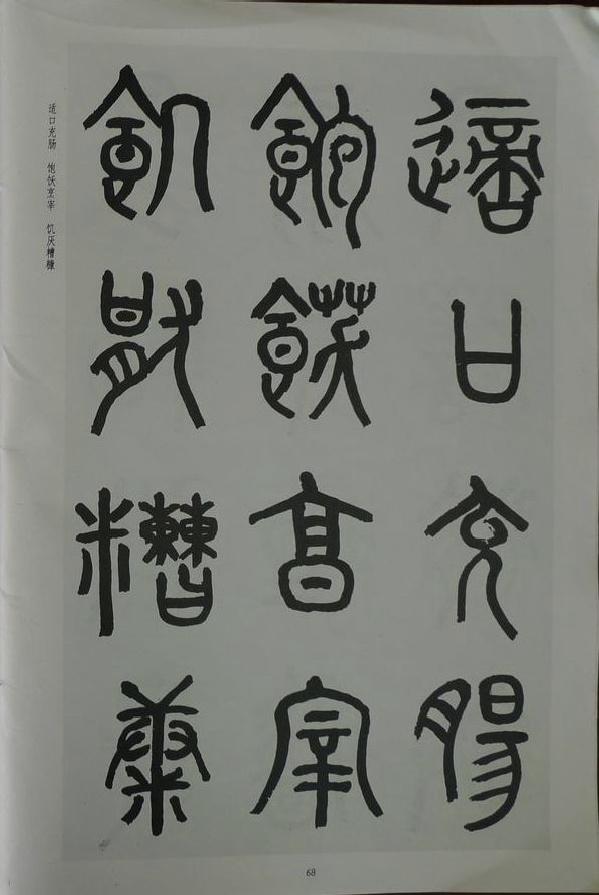 適口充腸
飽飫亯宰
飢猒糟康
适口充肠 饱饫烹宰 饥厌糟糠
68